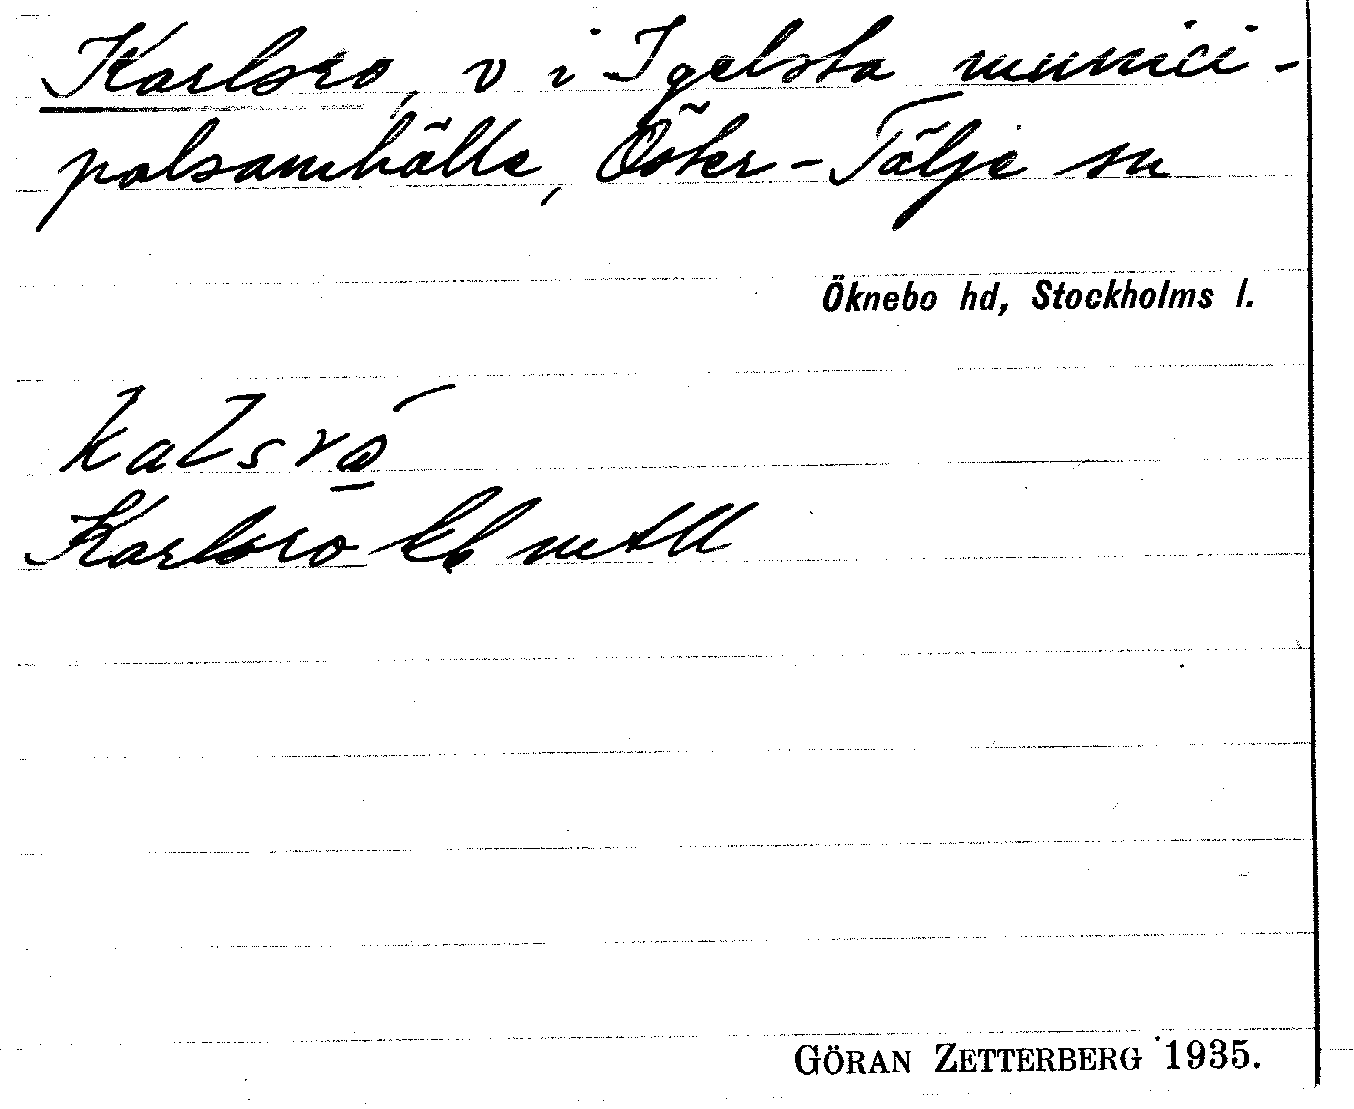 Karlsro, v i Igelsta munici-
palsamhälle, Öster-Tälje sn
Öknebo hd, Stockholms l.
Karlsro kb mtll
GÖRAN ZETTERBERG 1935.